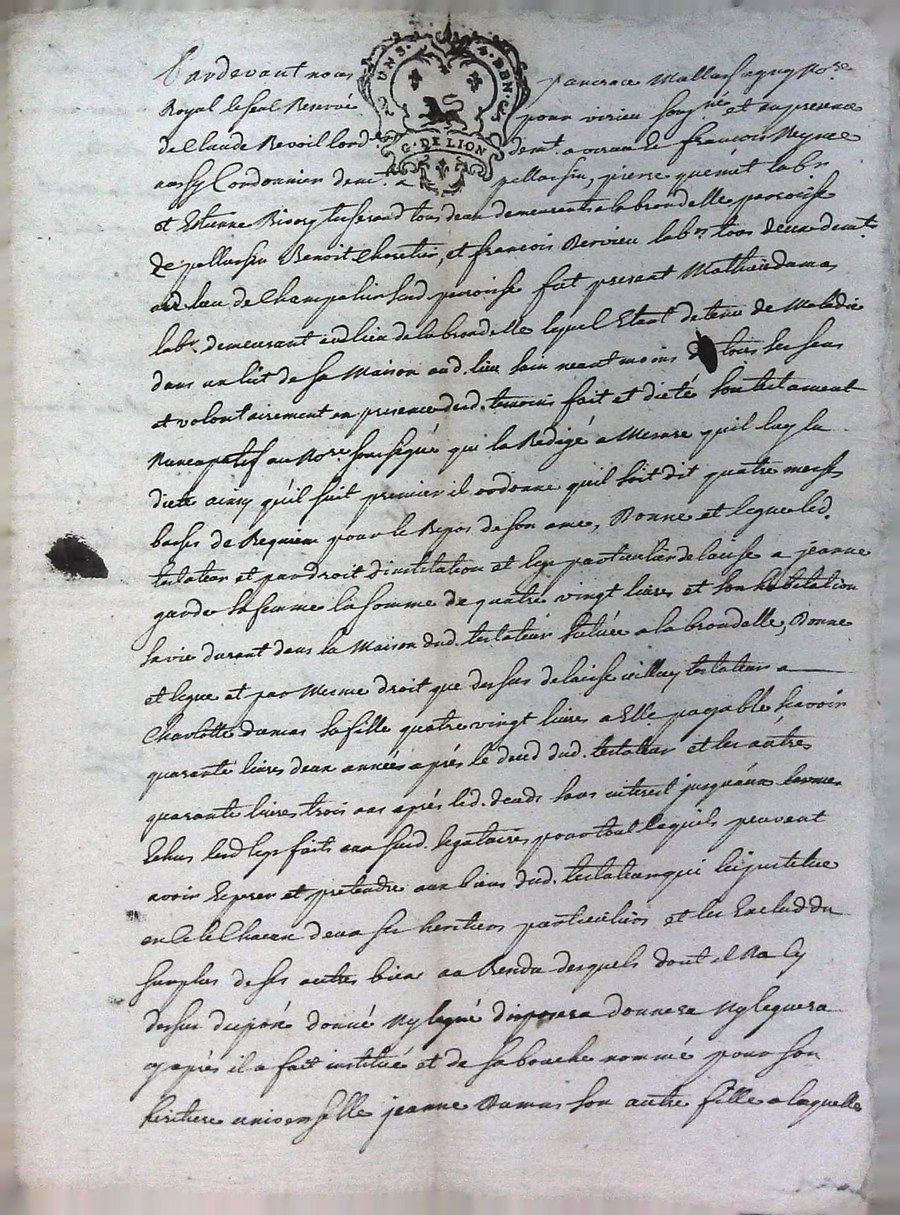 Pardevant nous pancrace Mallassagny No.re
Royal le seul Reservé pour virieu soug.né et en presence
de Claude Revoil Cord.r dem.t a virieu de francois Neyrce
UN S. S. DEN.
G. DE LION
aussy Cordonnier dem.t a pellassin, pierre quémet lab.r
et Estienne Bissey tisserand tous deux demeurants a la brondelle paroisse
de pellassin Benoit Choretier, et francois Bervieu lab.rs tous deux dem.t
aud. lieu de Champalin susd. paroisse fut present Mathieu damas
lab.r demeurant aud lieu de la brondelle lequel Etant detenu de Maladie
dans un lit de sa Maison aud. lieu sain neantmoins de tous ses sens
et volontairement en presence desd. temoins fait et dicté son testament
Nuncupatif au No.re soussigné qui la Redigé a Mesure quil luy la
dicté ainsy qu'il suit premier il ordonne quil soit dit quatre messes
basses de Requiem pour le Repos de son ame, Donne et legue led.
testateur et par droit d'institution et legs particulier delaisse a jeanne
garder sa femme la somme de quatre vingt livres et son habitation
sa vie durant dans la Maison dud. testateur située a la brondelle, Donne
et legue et par Mesme droit que dessus delaisse icelluy testateur a
Charlotte damas sa fille quatre vingt livres a Elle payable scavoir
quarante livres deux années aprés le deced dud. testateur et les autres
quarante livres trois ans aprés led. deceds sans interest jusquaux termes
Echus lesd legs faits aux susd. legataires pour tout ce quils peuvent
avoir Esperer et pretendre aux biens dud. testateur qui les institue
en Ce le Chacun deux ses heritiers particuliers et les Exclud du
surplus de ses autres biens au Rendu desquels dont il Na Cy
dessus disposé donné Ny legué disposera donnera Ny leguera
cy aprés il a fait institué et de sa bouche nommé pour son
heritiere universselle jeanne Damas son autre fille a laquelle